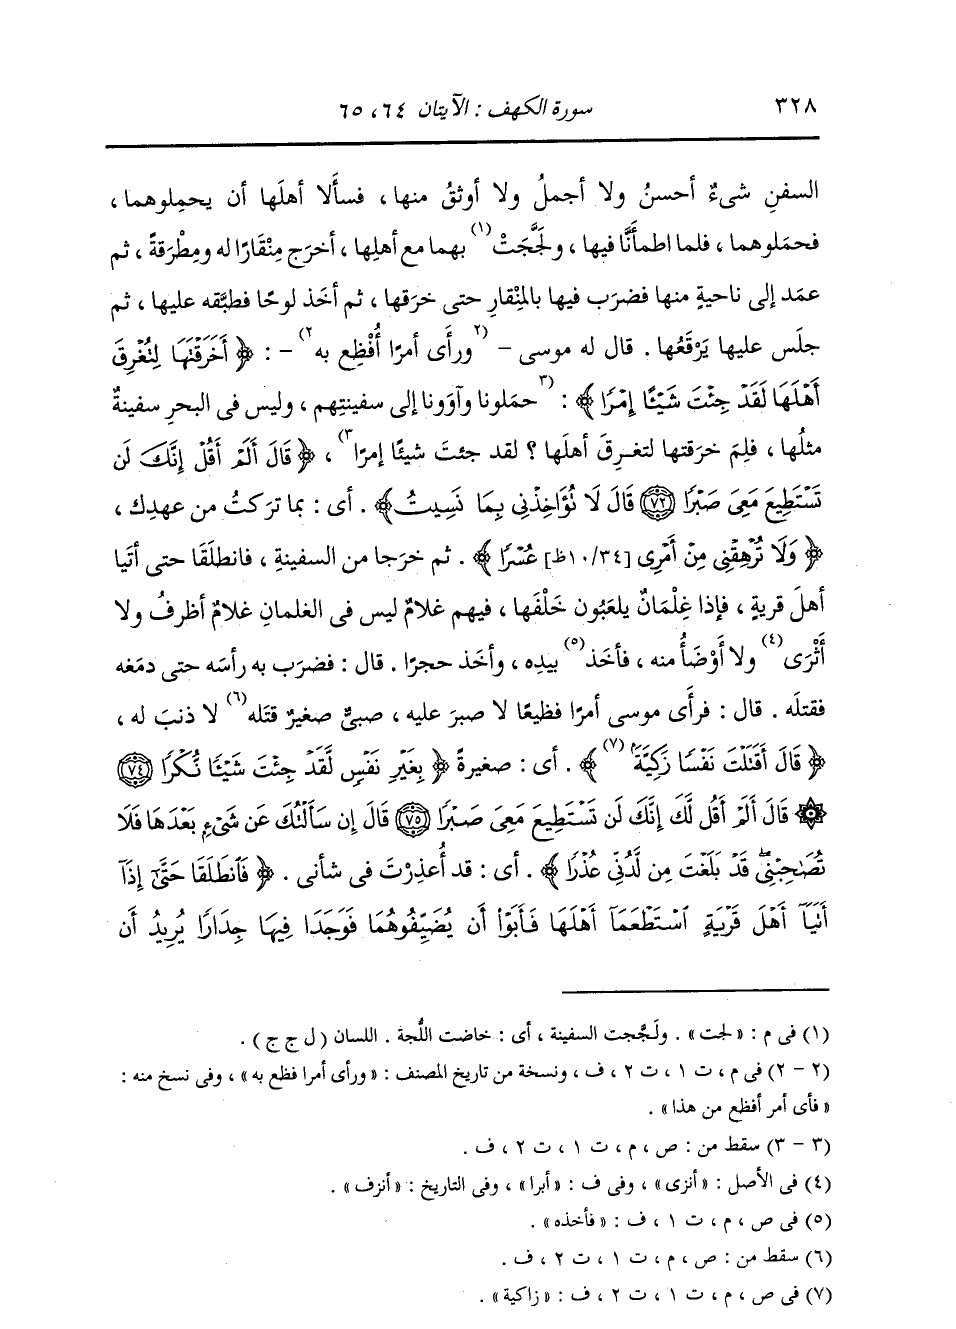 ٣٢٨ سورة الكهف : الآيتان ٦٤، ٦٥
السفنِ شىءٌ أحسنُ ولا أجملُ ولا أوثقُ منها ، فسأَلا أهلَها أن يحمِلوهما ،
فحمَلوهما ، فلما اطمأَنَّا فيها ، ولَجَّجَتْ(١) بهما مع أهلِها ، أخرَج مِنْقَارًا له ومِطْرَقةً ، ثم
عمَد إلى ناحيةٍ منها فضرَب فيها بالمِنْقارِ حتى خرَقها ، ثم أخَذ لوحًا فطبَّقه عليها ، ثم
جلَس عليها يَرْقَعُها . قال له موسى – (٢ ورأَى أمرًا أُفْظِع به ٢) – : ﴿ أَخَرَقْتَهَا لِتُغْرِقَ
أَهْلَهَا لَقَدْ جِئْتَ شَيْئًا إِمْرًا ﴾ : (٣ حملونا وآوَونا إلى سفينتِهم ، وليس فى البحرِ سفينةٌ
مثلُها ، فلِمَ خرَقتها لتغرِقَ أهلَها ؟ لقد جئتَ شيئًا إمرًا ٣) ، ﴿ قَالَ أَلَمْ أَقُلْ إِنَّكَ لَن
تَسْتَطِيعَ مَعِىَ صَبْرًا ٧٢ قَالَ لَا تُؤَاخِذْنِى بِمَا نَسِيتُ ﴾ . أى : بما ترَكتُ من عهدِك ،
﴿ وَلَا تُرْهِقْنِى مِنْ أَمْرِى [١٠/٣٤ظ] عُسْرًا ﴾ . ثم خرَجا من السفينةِ ، فانطلَقَا حتى أتَيا
أهلَ قريةٍ ، فإذا غِلْمانٌ يلعَبُون خَلْفَها ، فيهم غلامٌ ليس فى الغلمانِ غلامٌ أظرفُ ولا
أَثْرَى(٤) ولا أَوْضَأُ منه ، فأخَذ(٥) بيدِه ، وأخَذ حجرًا . قال : فضرَب به رأسَه حتى دمَغه
فقتلَه . قال : فرأَى موسى أمرًا فظيعًا لا صبرَ عليه ، صبىٌّ صغيرٌ قتَله(٦) لا ذنبَ له ،
﴿ قَالَ أَقَتَلْتَ نَفْسًا زَكِيَّةً(٧) ﴾ . أى : صغيرةً ﴿ بِغَيْرِ نَفْسٍ لَّقَدْ جِئْتَ شَيْئًا نُّكْرًا ٧٤
۞ قَالَ أَلَمْ أَقُل لَّكَ إِنَّكَ لَن تَسْتَطِيعَ مَعِىَ صَبْرًا ٧٥ قَالَ إِن سَأَلْتُكَ عَن شَىْءٍ بَعْدَهَا فَلَا
تُصَٰحِبْنِى ۖ قَدْ بَلَغْتَ مِن لَّدُنِّى عُذْرًا ﴾ . أى : قد أُعذِرْتَ فى شأنى . ﴿ فَٱنطَلَقَا حَتَّىٰٓ إِذَآ
أَتَيَآ أَهْلَ قَرْيَةٍ ٱسْتَطْعَمَآ أَهْلَهَا فَأَبَوْا۟ أَن يُضَيِّفُوهُمَا فَوَجَدَا فِيهَا جِدَارًا يُرِيدُ أَن
(١) فى م : « لجت » . ولَجَّجت السفينة ، أى : خاضت اللُّجة . اللسان ( ل ج ج ) .
(٢ – ٢) فى م ، ت ١ ، ت ٢ ، ف ، ونسخة من تاريخ المصنف : « ورأى أمرا فظع به » ، وفى نسخ منه :
« فأى أمر أفظع من هذا » .
(٣ – ٣) سقط من : ص ، م ، ت ١ ، ت ٢ ، ف .
(٤) فى الأصل : « أنزى » ، وفى ف : « أبرا » ، وفى التاريخ : « أنزف » .
(٥) فى ص ، م ، ت ١ ، ف : « فأخذه » .
(٦) سقط من : ص ، م ، ت ١ ، ت ٢ ، ف .
(٧) فى ص ، م ، ت ١ ، ت ٢ ، ف : « زاكية » .